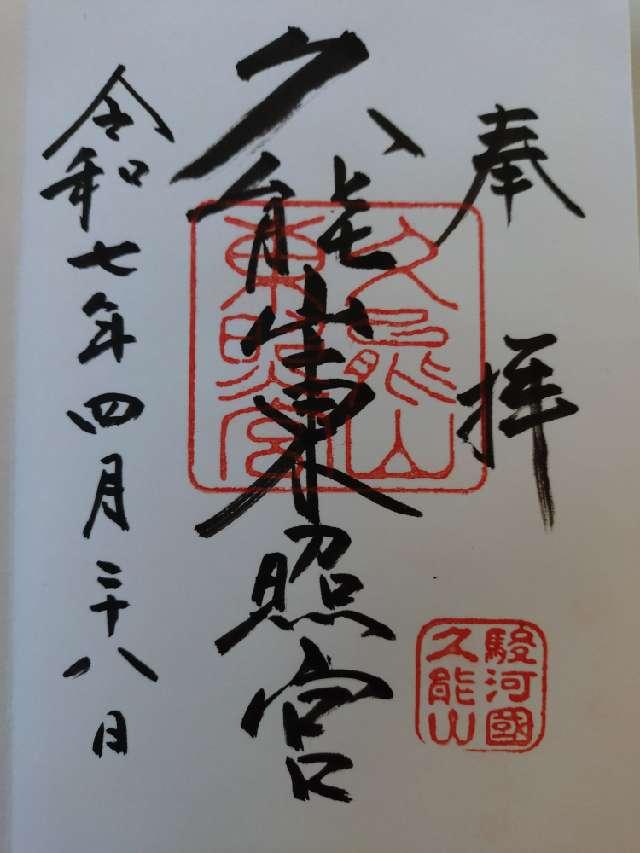 奉拝
久能山東照宮
令和七年四月二十八日
久能山
東照宮
駿河國
久能山